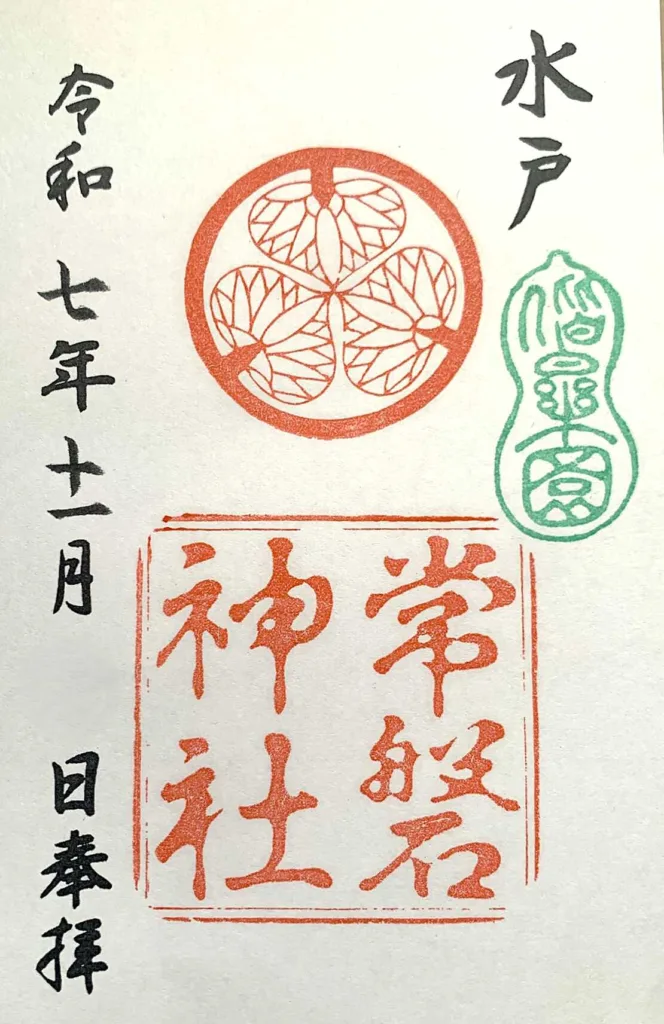 水戸
偕楽園
常磐
神社
令和七年十一月 日奉拝